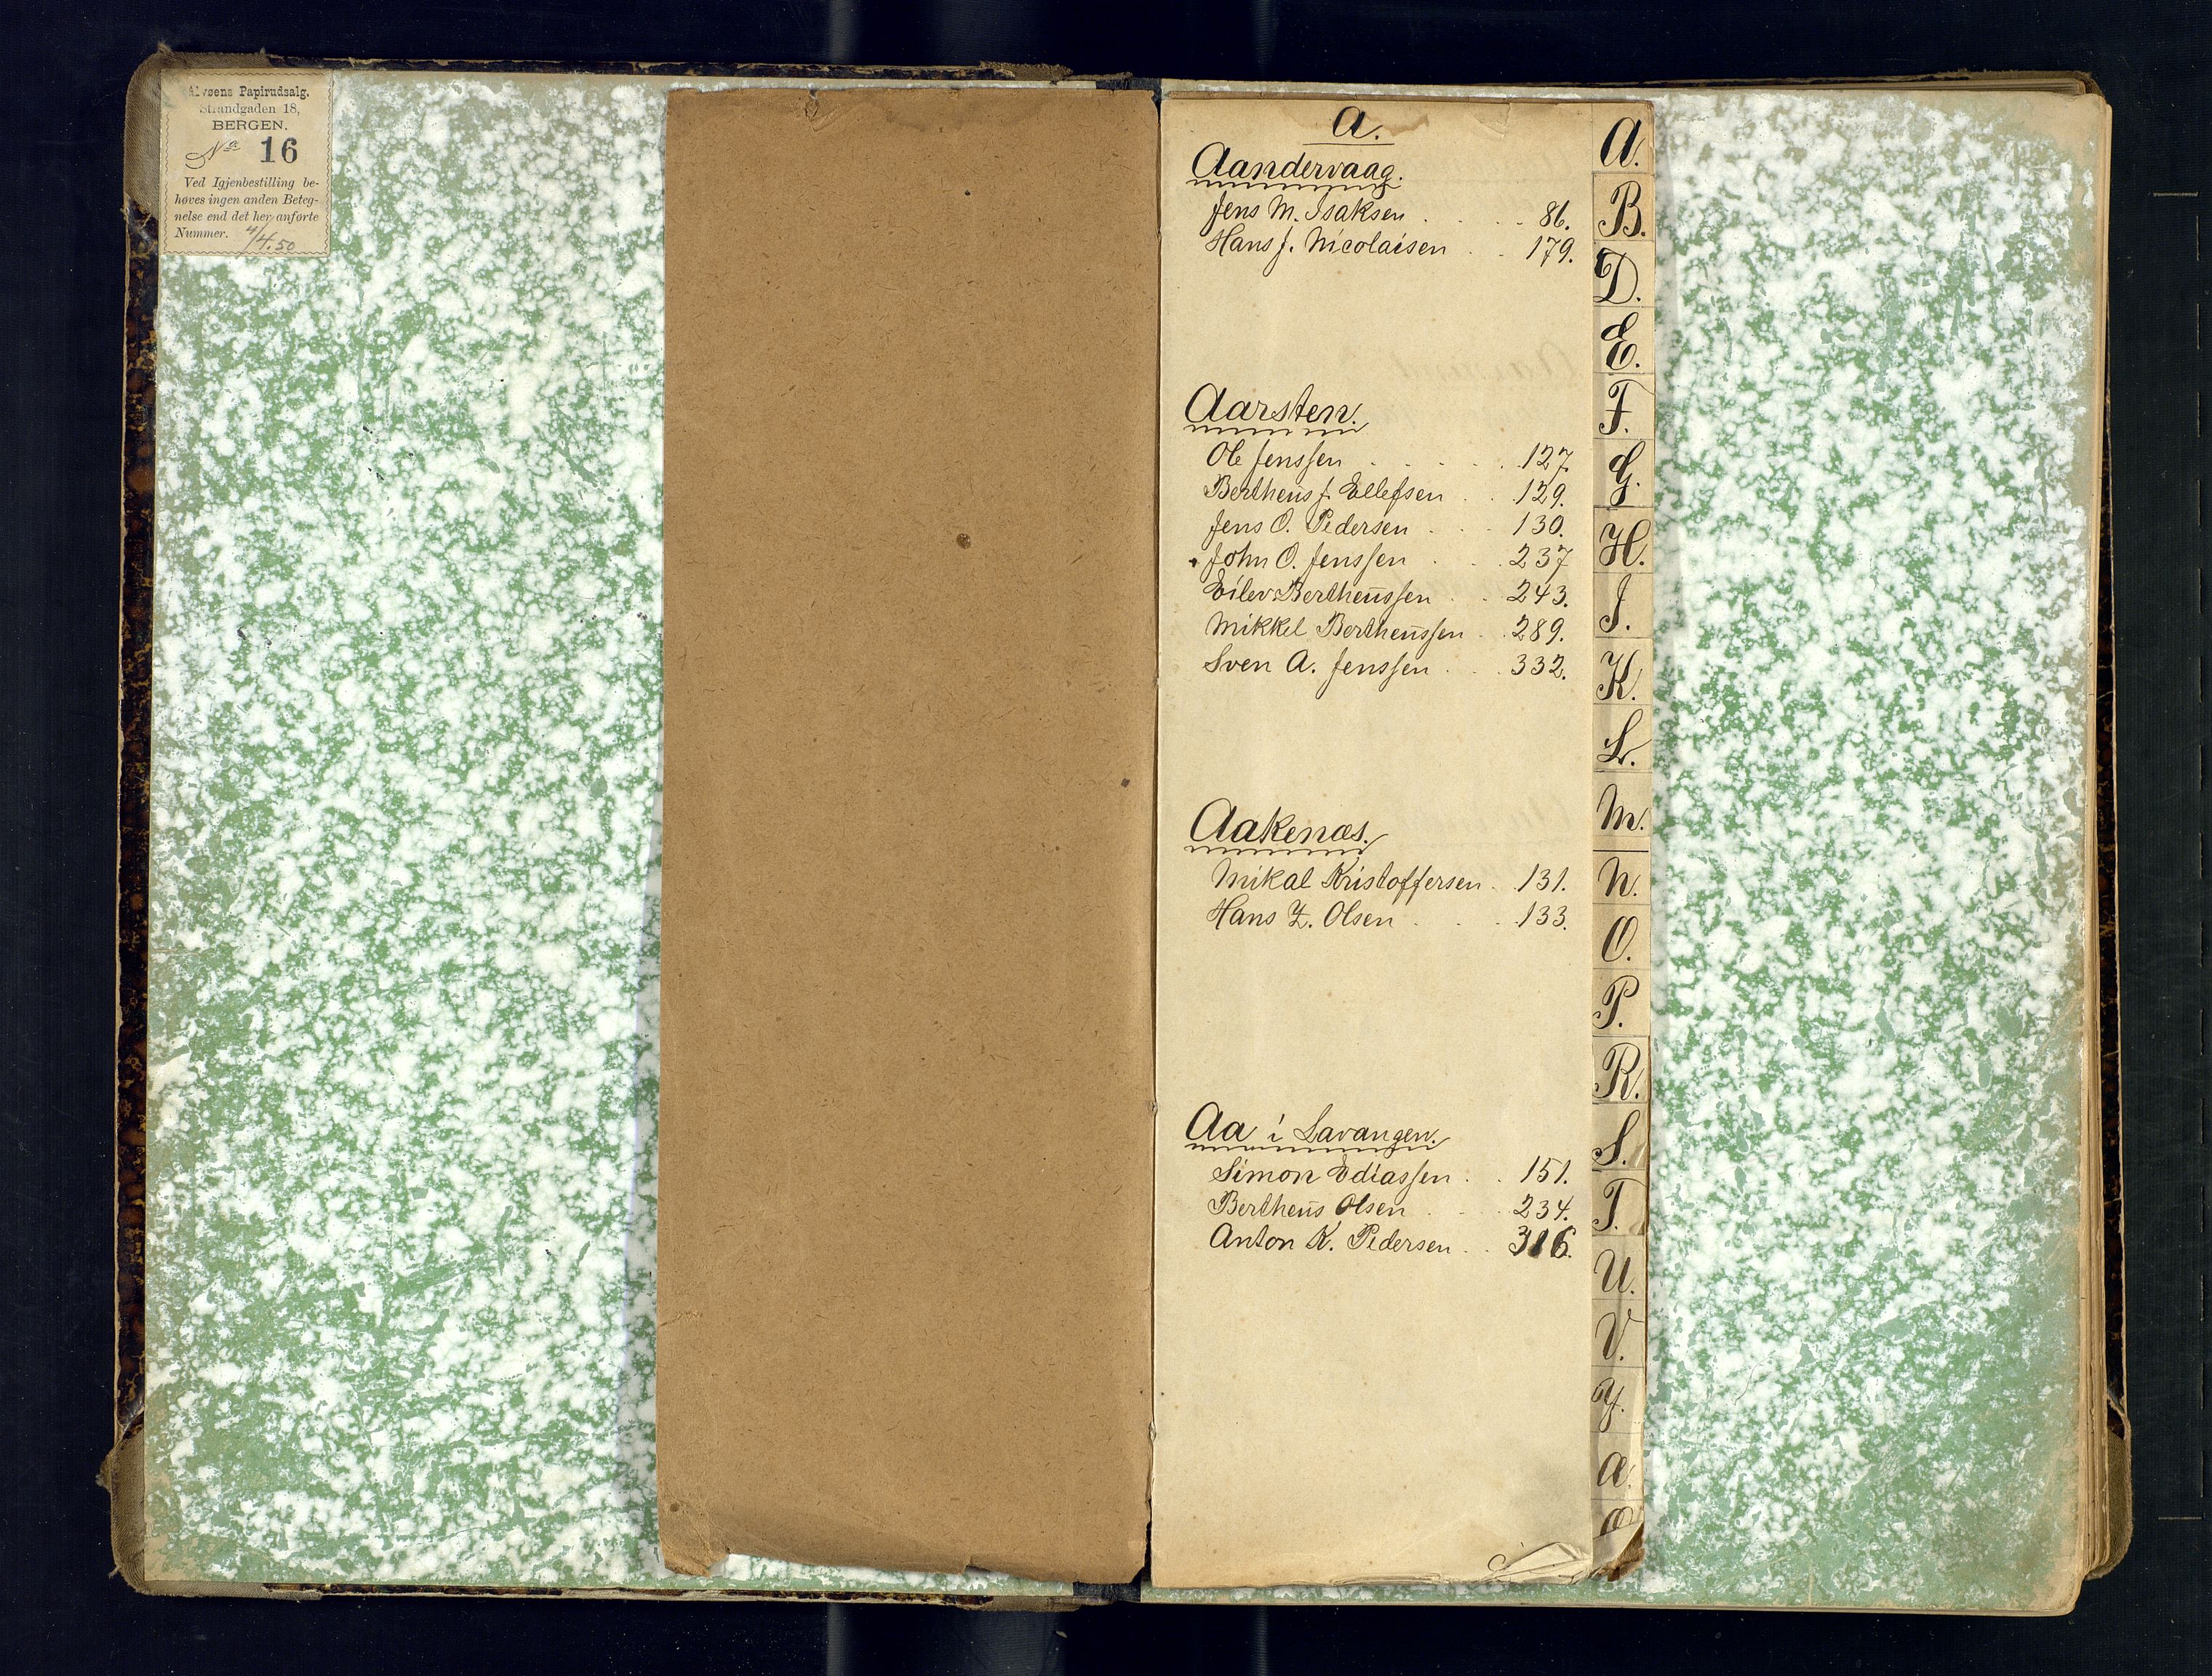 Alvøens Papirudsalg.
Strandgaden 18,
BERGEN.
No 16
Ved Igjenbestilling be-
høves ingen anden Beteg-
nelse end det her anførte
Nummer. 4/4.50
A.
Aandervaag.
Jens M. Isaksen . . . 86.
Hans J. Nicolaisen . . 179.
Aarsten.
Ole Jenssen . . . . 127.
Bertheus J. Ellefsen . . 129.
Jens O. Pedersen . . . 130.
John O. Jenssen . . . 237
Eilev Bertheussen . . 243.
Mikkel Bertheussen . . 289.
Sven A. Jenssen . . . 332.
Aakenæs.
Mikal Kristoffersen . . 131.
Hans Z. Olsen . . . 133.
Aa i Lavangen.
Simon Ediassen . . 151.
Bertheus Olsen . . . 234.
Anton K. Pedersen . . 316.
A.
B.
D.
E.
F.
G.
H.
I.
K.
L.
M.
N.
O.
P.
R.
S.
T.
U.
V.
Y.
Æ.
Ø